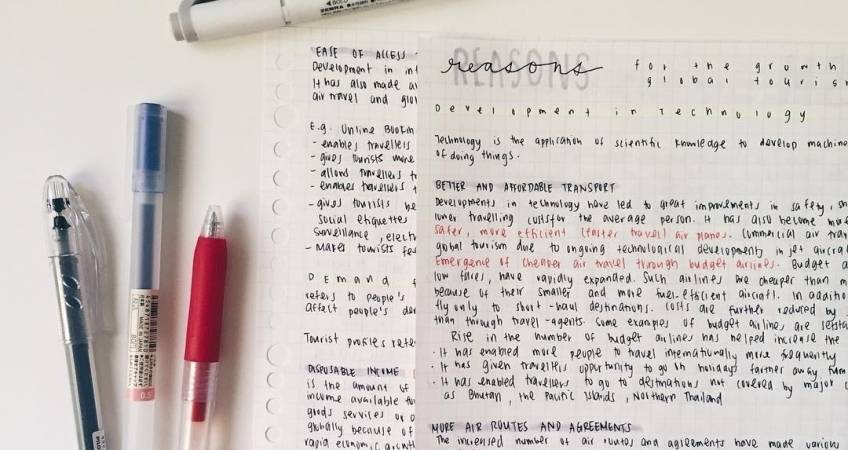 ZEBRA
EASE OF ACCESS
Development in in
It has also made a
air travel and glo
E.g. Online Bookin
- enables travellers
- gives tourists more
- allows travellers t
- enables travellers t
- gives tourists be
social etiquettes
surveillance, elect
- Makes tourists fe
Demand f
refers to people's
affect people's de
Tourist profiles refe
DISPOSABLE INCOME
is the amount of
income available fo
goods services or
globally because of
rapid economic growth
reasons
REASONS
for the growth
global touris
Development in Technology
Technology is the application of scientific knowledge to develop machine
of doing things.
BETTER AND AFFORDABLE TRANSPORT
Developments in technology have led to great improvements in safety, sh
lower travelling costs for the average person. It has also become more
safer, more efficient (faster travel) air planes. Commercial air trav
global tourism due to ongoing technological developments in jet aircra
Emergence of cheaper air travel through budget airlines. Budget a
low fares, have rapidly expanded. Such airlines are cheaper than m
because of their smaller and more fuel-efficient aircraft. In additio
fly only to short-haul destinations. Costs are further reduced by
than through travel-agents. Some examples of budget airline are Jetsta
Rise in the number of budget airlines has helped increase the
· It has enabled more people to travel internationally more frequently
· It has given travellers opportunity to go on holidays farther away from
· It has enabled travellers to go to destinations not covered by major
as Bhutan, the Pacific Islands, Northern Thailand
MORE AIR ROUTES AND AGREEMENTS
The increased number of air routes and agreements have made various
0.5
MADE IN JAPAN